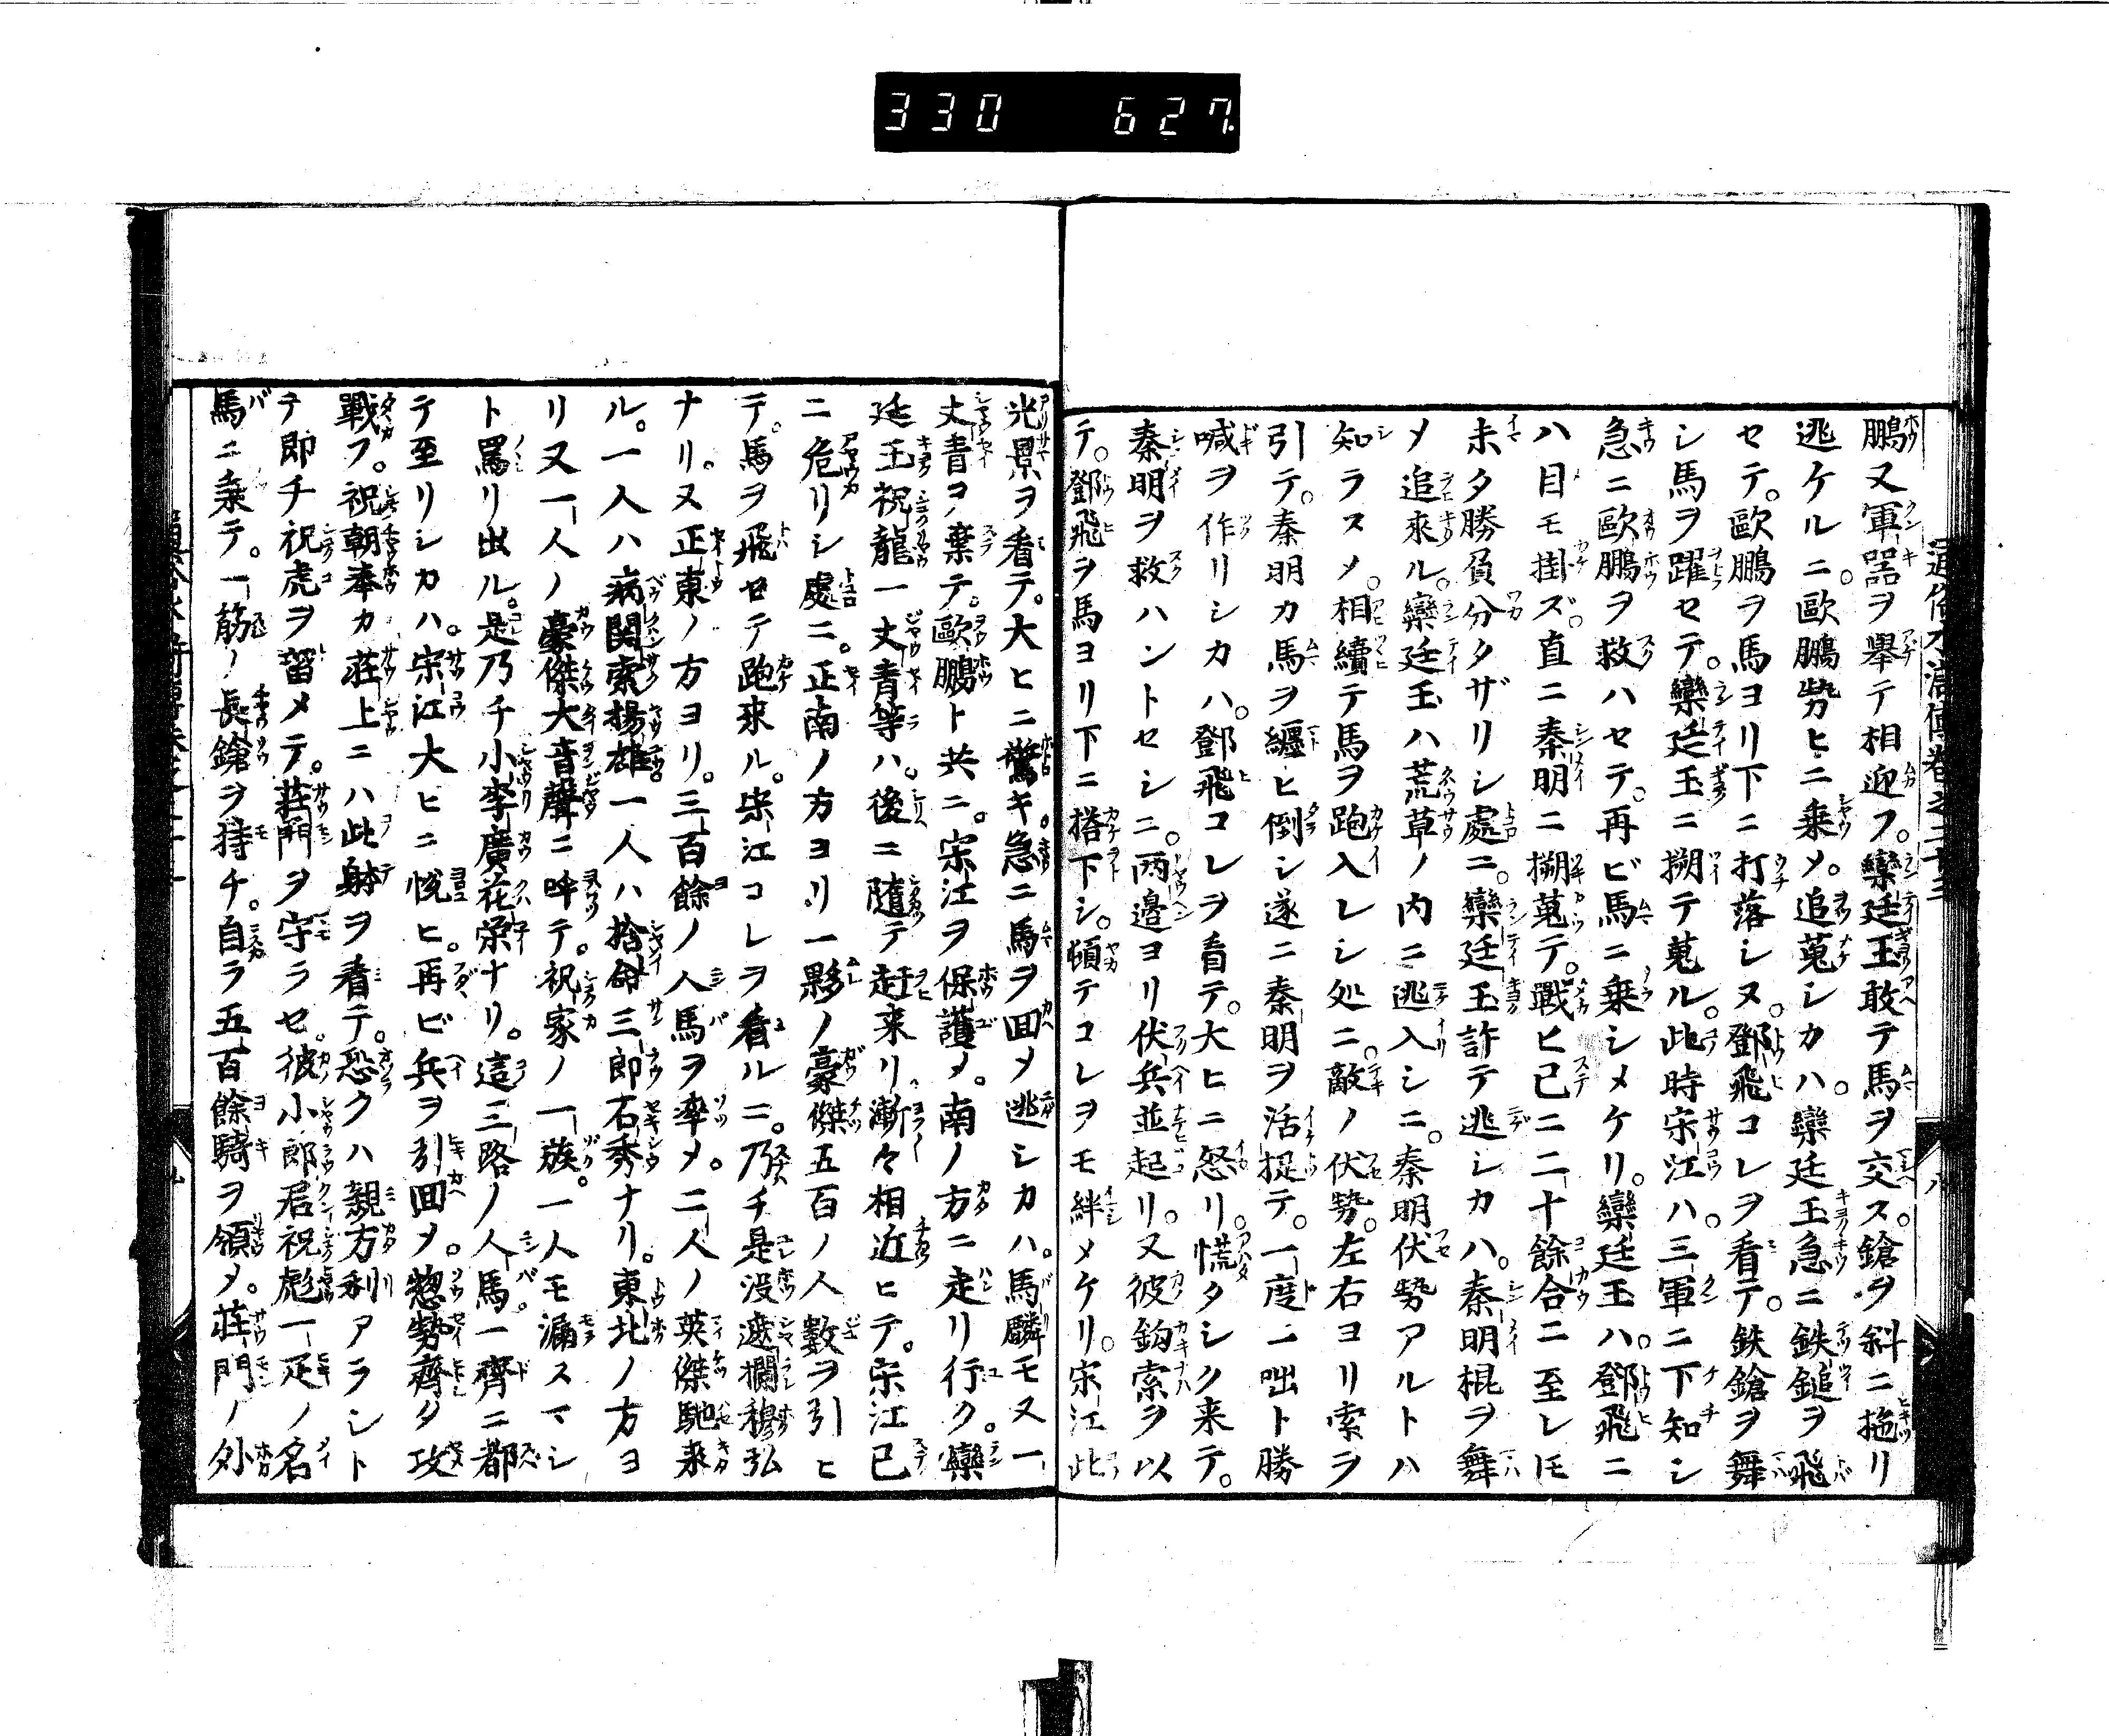 330 627.
鵬又軍器ヲ擧テ相迎フ。欒廷玉敢テ馬ヲ交ス。鎗ヲ斜ニ拖リ
逃ケルニ。歐鵬勢ヒニ乗メ。追蒐シカハ。欒廷玉急ニ鉄鎚ヲ飛
セテ。歐鵬ヲ馬ヨリ下ニ打落シヌ。鄧飛コレヲ看テ。鉄鎗ヲ舞
シ馬ヲ躍セテ。欒廷玉ニ搠テ蒐ル。此時宋江ハ。三軍ニ下知シ
急ニ歐鵬ヲ救ハセテ。再ビ馬ニ乗シメケリ。欒廷玉ハ。鄧飛ニ
ハ目モ掛ズ。直ニ秦明ニ搠蒐テ。戰ヒ已ニ二十餘合ニ至レ𪜈
未タ勝負分タザリシ處ニ。欒廷玉許テ逃シカハ。秦明棍ヲ舞
メ追來ル。欒廷玉ハ荒草ノ内ニ逃入シニ。秦明伏勢アルトハ
知ラスメ。相續テ馬ヲ跑入レシ処ニ。敵ノ伏勢。左右ヨリ索ヲ
引テ。秦明カ馬ヲ纒ヒ倒シ遂ニ秦明ヲ活捉テ。一度ニ咄ト勝
喊ヲ作リシカハ。鄧飛コレヲ看テ。大ヒニ怒リ。慌タシク来テ。
秦明ヲ救ハントセシニ。両邉ヨリ伏兵並起リ。又彼鈎索ヲ以
テ。鄧飛ヲ馬ヨリ下ニ搭下シ。頓テコレヲモ絆メケリ。宋江此
光景ヲ看テ。大ヒニ驚キ。急ニ馬ヲ囬メ逃シカハ。馬麟モ又一
丈青ヲ棄テ。歐鵬ト共ニ。宋江ヲ保護メ。南ノ方ニ走リ行ク。欒
廷玉祝龍一丈青等ハ。後ニ隨テ赶来リ。漸々相近ヒテ。宋江已
ニ危リシ處ニ。正南ノ方ヨリ一夥ノ豪傑五百ノ人數ヲ引ヒ
テ。馬ヲ飛セテ跑來ル。宋江コレヲ看ルニ。乃チ是沒遮攔穆弘
ナリ。又正東ノ方ヨリ。三百餘ノ人馬ヲ率メ。二人ノ英傑馳来
ル。一人ハ病関索揚雄一人ハ捨命三郎石秀ナリ。東北ノ方ヨ
リ又一人ノ豪傑大音聲ニ吽テ。祝家ノ一族。一人モ漏スマシ
ト罵リ出ル。是乃チ小李廣花榮ナリ。這三路ノ人馬。一齊ニ都
テ至リシカハ。宋江大ヒニ悅ヒ。再ビ兵ヲ引囬メ。惣勢齊タ攻
戰フ。祝朝奉カ莊上ニハ此躰ヲ看テ。恐クハ親方利アラント
テ即チ祝虎ヲ留メテ。莊門ヲ守ラセ。彼小郎君祝彪一疋ノ名
馬ニ乗テ。一筋ノ長鎗ヲ持チ。自ラ五百餘騎ヲ領メ。莊門ノ外